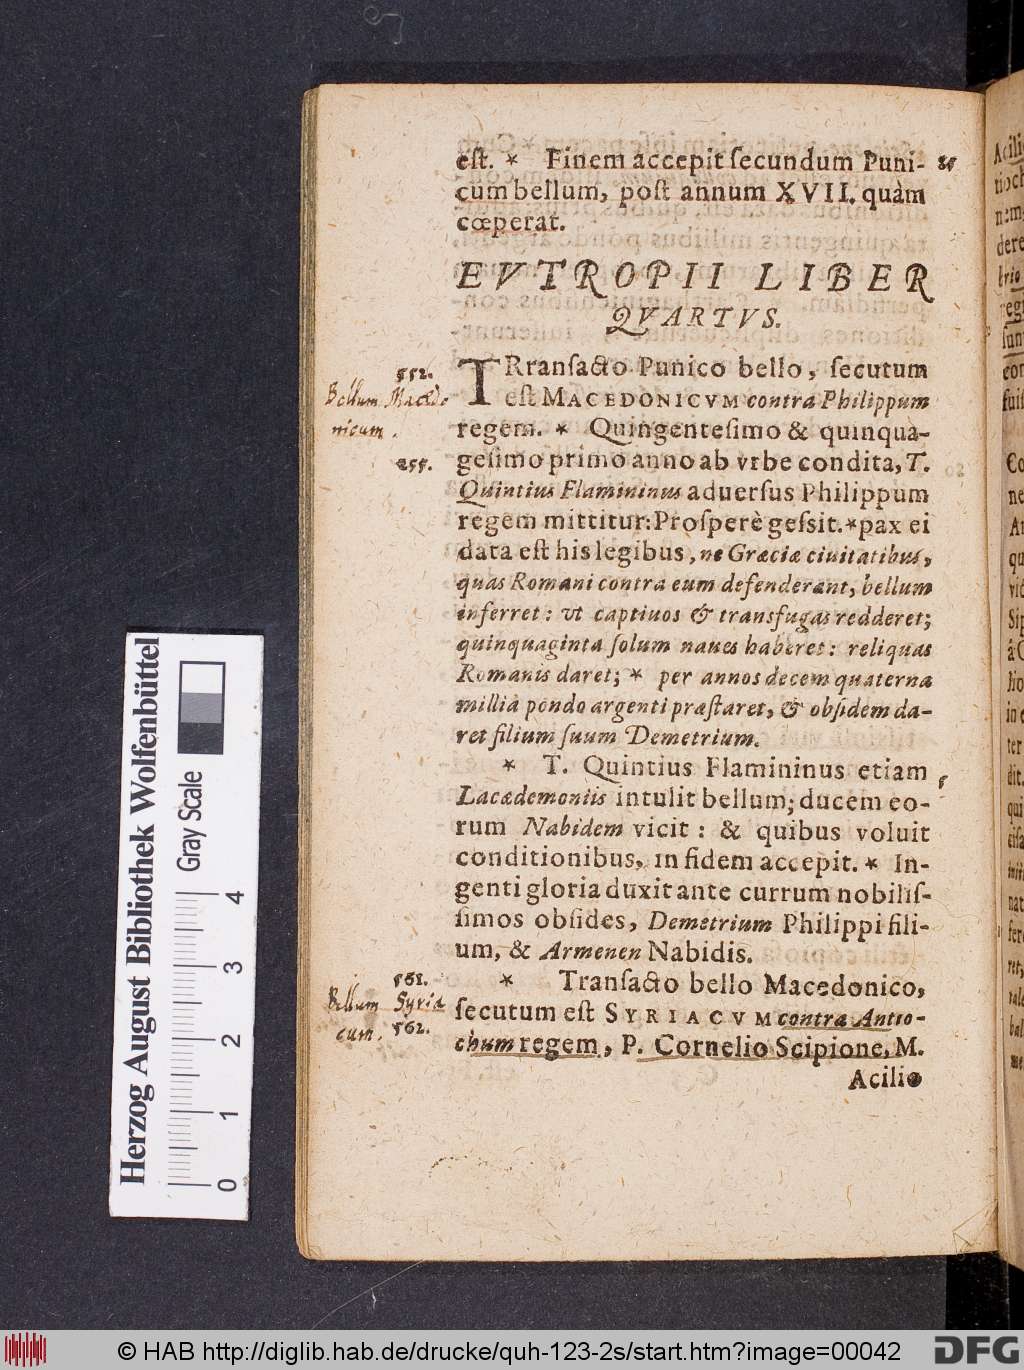 est. * Finem accepit secundum Puni-
cum bellum, post annum XVII. quàm
cœperat.
EVTROPII LIBER
QVARTVS.
TRransacto Punico bello, secutum
est MACEDONICVM contra Philippum
regem. * Quingentesimo & quinqua-
gesimo primo anno ab vrbe condita, T.
Quintius Flamininus aduersus Philippum
regem mittitur: Prosperè gessit. * pax ei
data est his legibus, ne Græciæ ciuitatibus,
quas Romani contra eum defenderant, bellum
inferret: vt captiuos & transfugas redderet;
quinquaginta solum naues haberet: reliquas
Romanis daret; * per annos decem quaterna
millia pondo argenti præstaret, & obsidem da-
ret filium suum Demetrium.
* T. Quintius Flamininus etiam
Lacædemoniis intulit bellum; ducem eo-
rum Nabidem vicit: & quibus voluit
conditionibus, in fidem accepit. * In-
genti gloria duxit ante currum nobilis-
simos obsides, Demetrium Philippi fili-
um, & Armenen Nabidis.
* Transacto bello Macedonico,
secutum est SYRIACVM contra Antio-
chum regem, P. Cornelio Scipione, M.
Acilio
552.
Bellum Macedo
nicum.
255.
561.
Bellum Syria
cum. 562.
Herzog August Bibliothek Wolfenbüttel
Gray Scale
0 1 2 3 4
© HAB http://diglib.hab.de/drucke/quh-123-2s/start.htm?image=00042
DFG